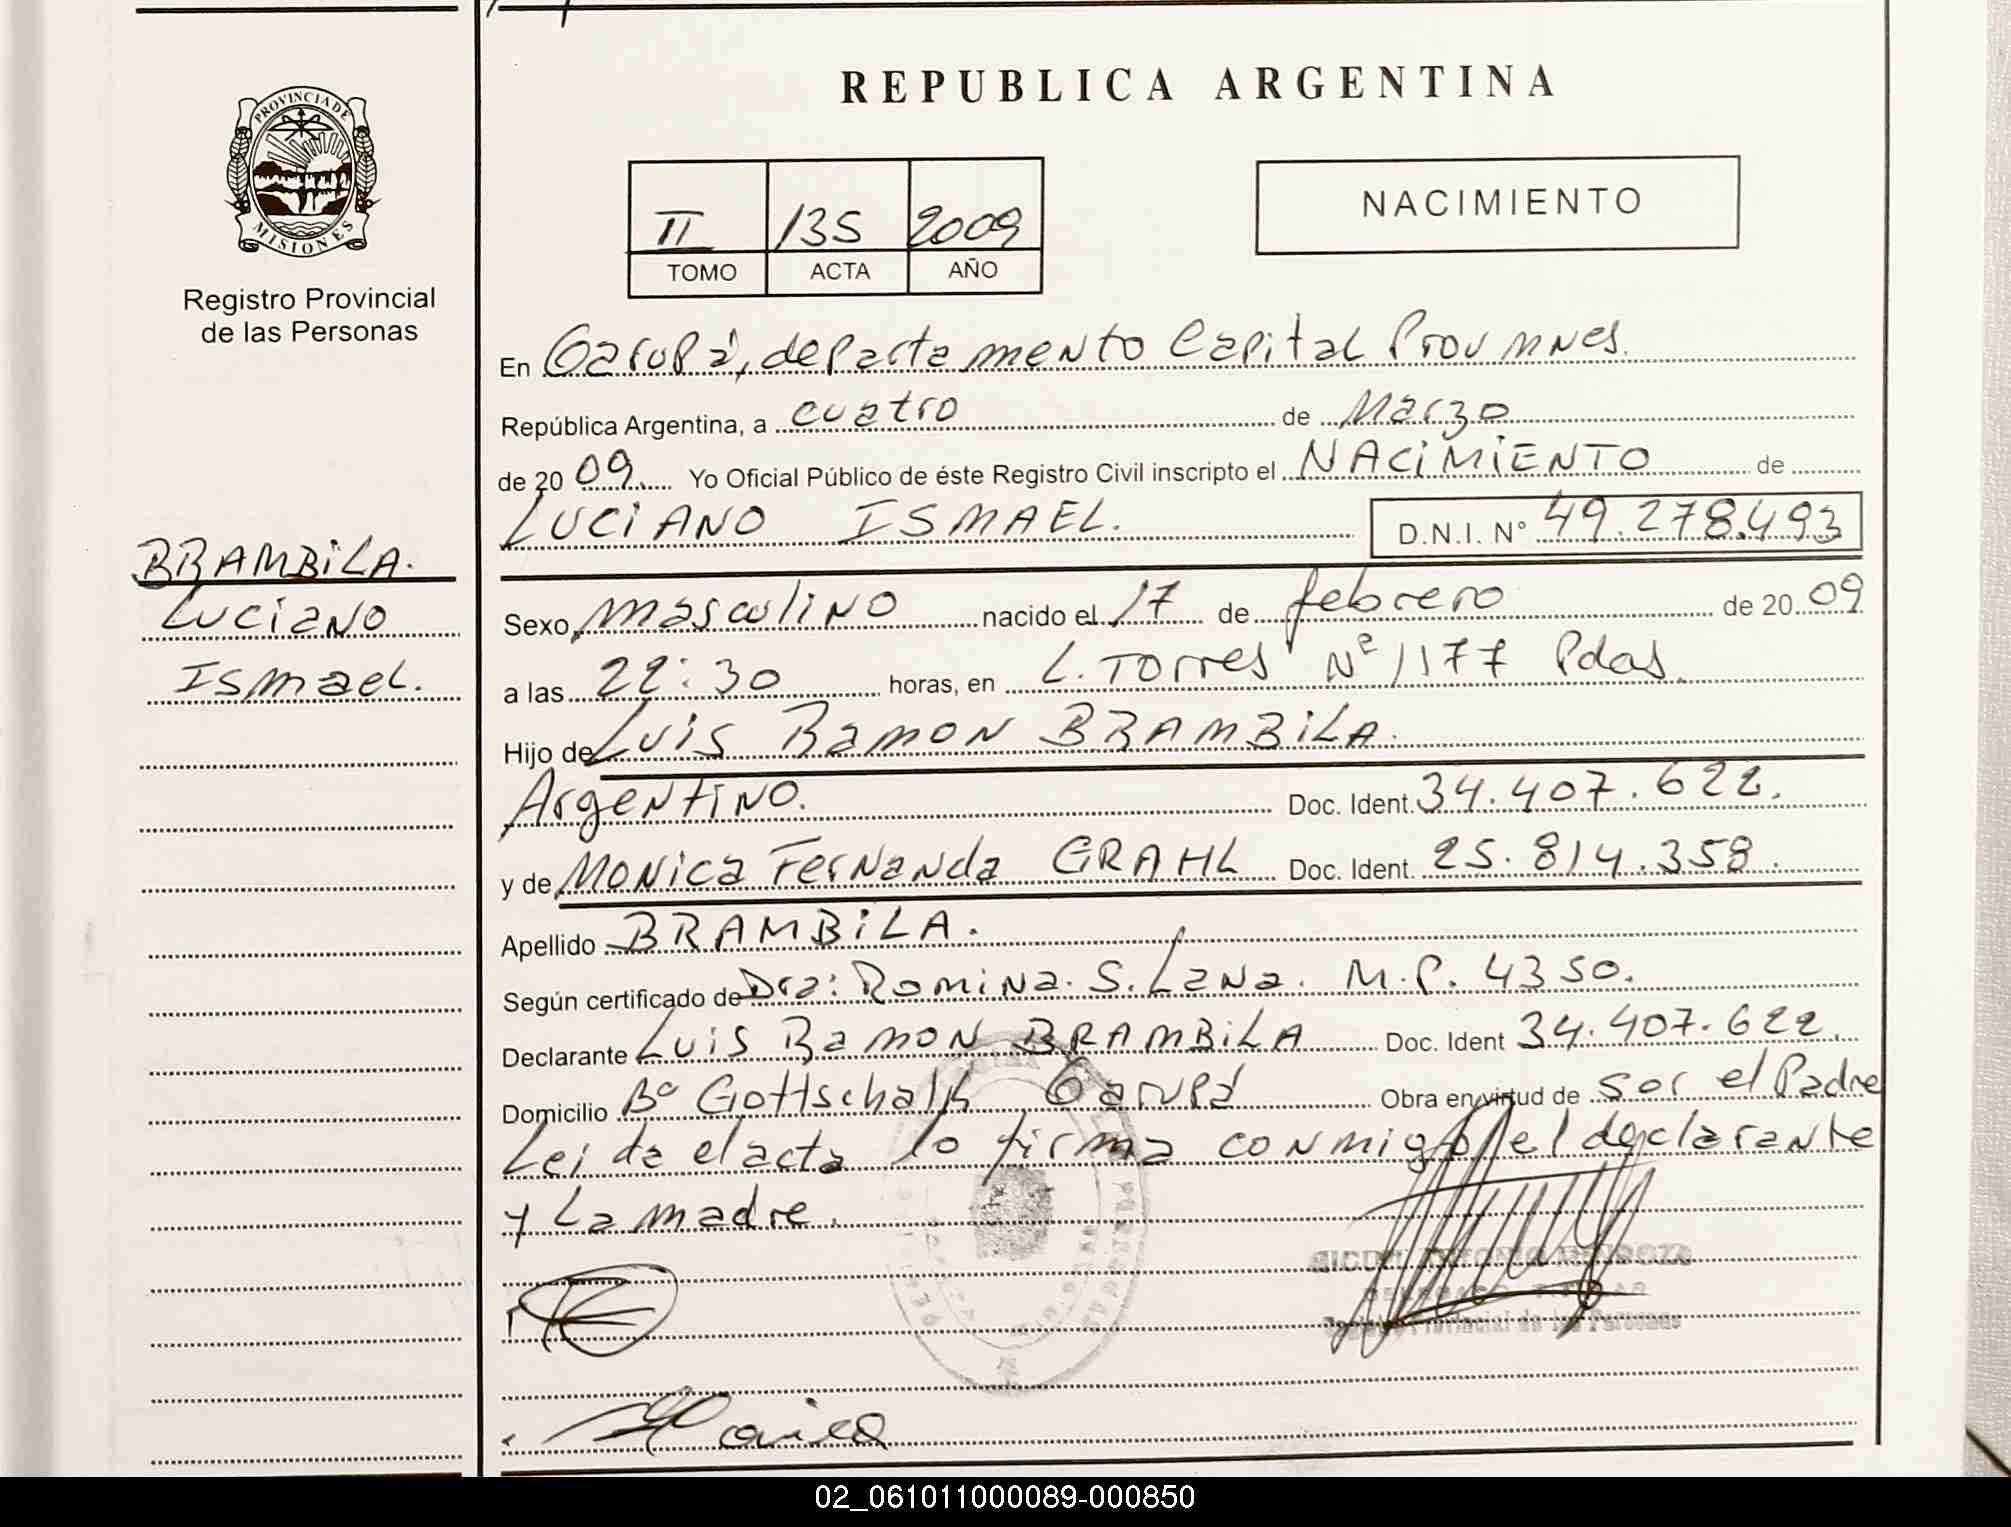 REPUBLICA ARGENTINA
PROVINCIA DE
MISIONES
Registro Provincial
de las Personas
II 135 2009
TOMO ACTA AÑO
NACIMIENTO
En Garupá, departamento Capital Prov Mnes.
República Argentina, a cuatro de Marzo
de 2009 Yo Oficial Público de éste Registro Civil inscripto el NACIMIENTO de
LUCIANO ISMAEL. D.N.I. N° 49.278.493
BRAMBILA.
Luciano
Ismael.
Sexo masculino nacido el 17 de febrero de 2009
a las 22:30 horas, en L. Torres Nº 1177 Pdas.
Hijo de Luis Ramon BRAMBILA.
Argentino. Doc. Ident. 34.407.622.
y de Monica Fernanda GRAHL Doc. Ident. 25.814.358.
Apellido BRAMBILA.
Según certificado de Dra: Romina. S. Lana. M.P. 4350.
Declarante Luis Ramon BRAMBILA Doc. Ident 34.407.622.
Domicilio Bº Gottschalk Garupá Obra en virtud de Sor el Padre
Leida el acta lo firma conmigo el declarante
y La madre.
Provincial de las Personas
Monica
02_061011000089-000850